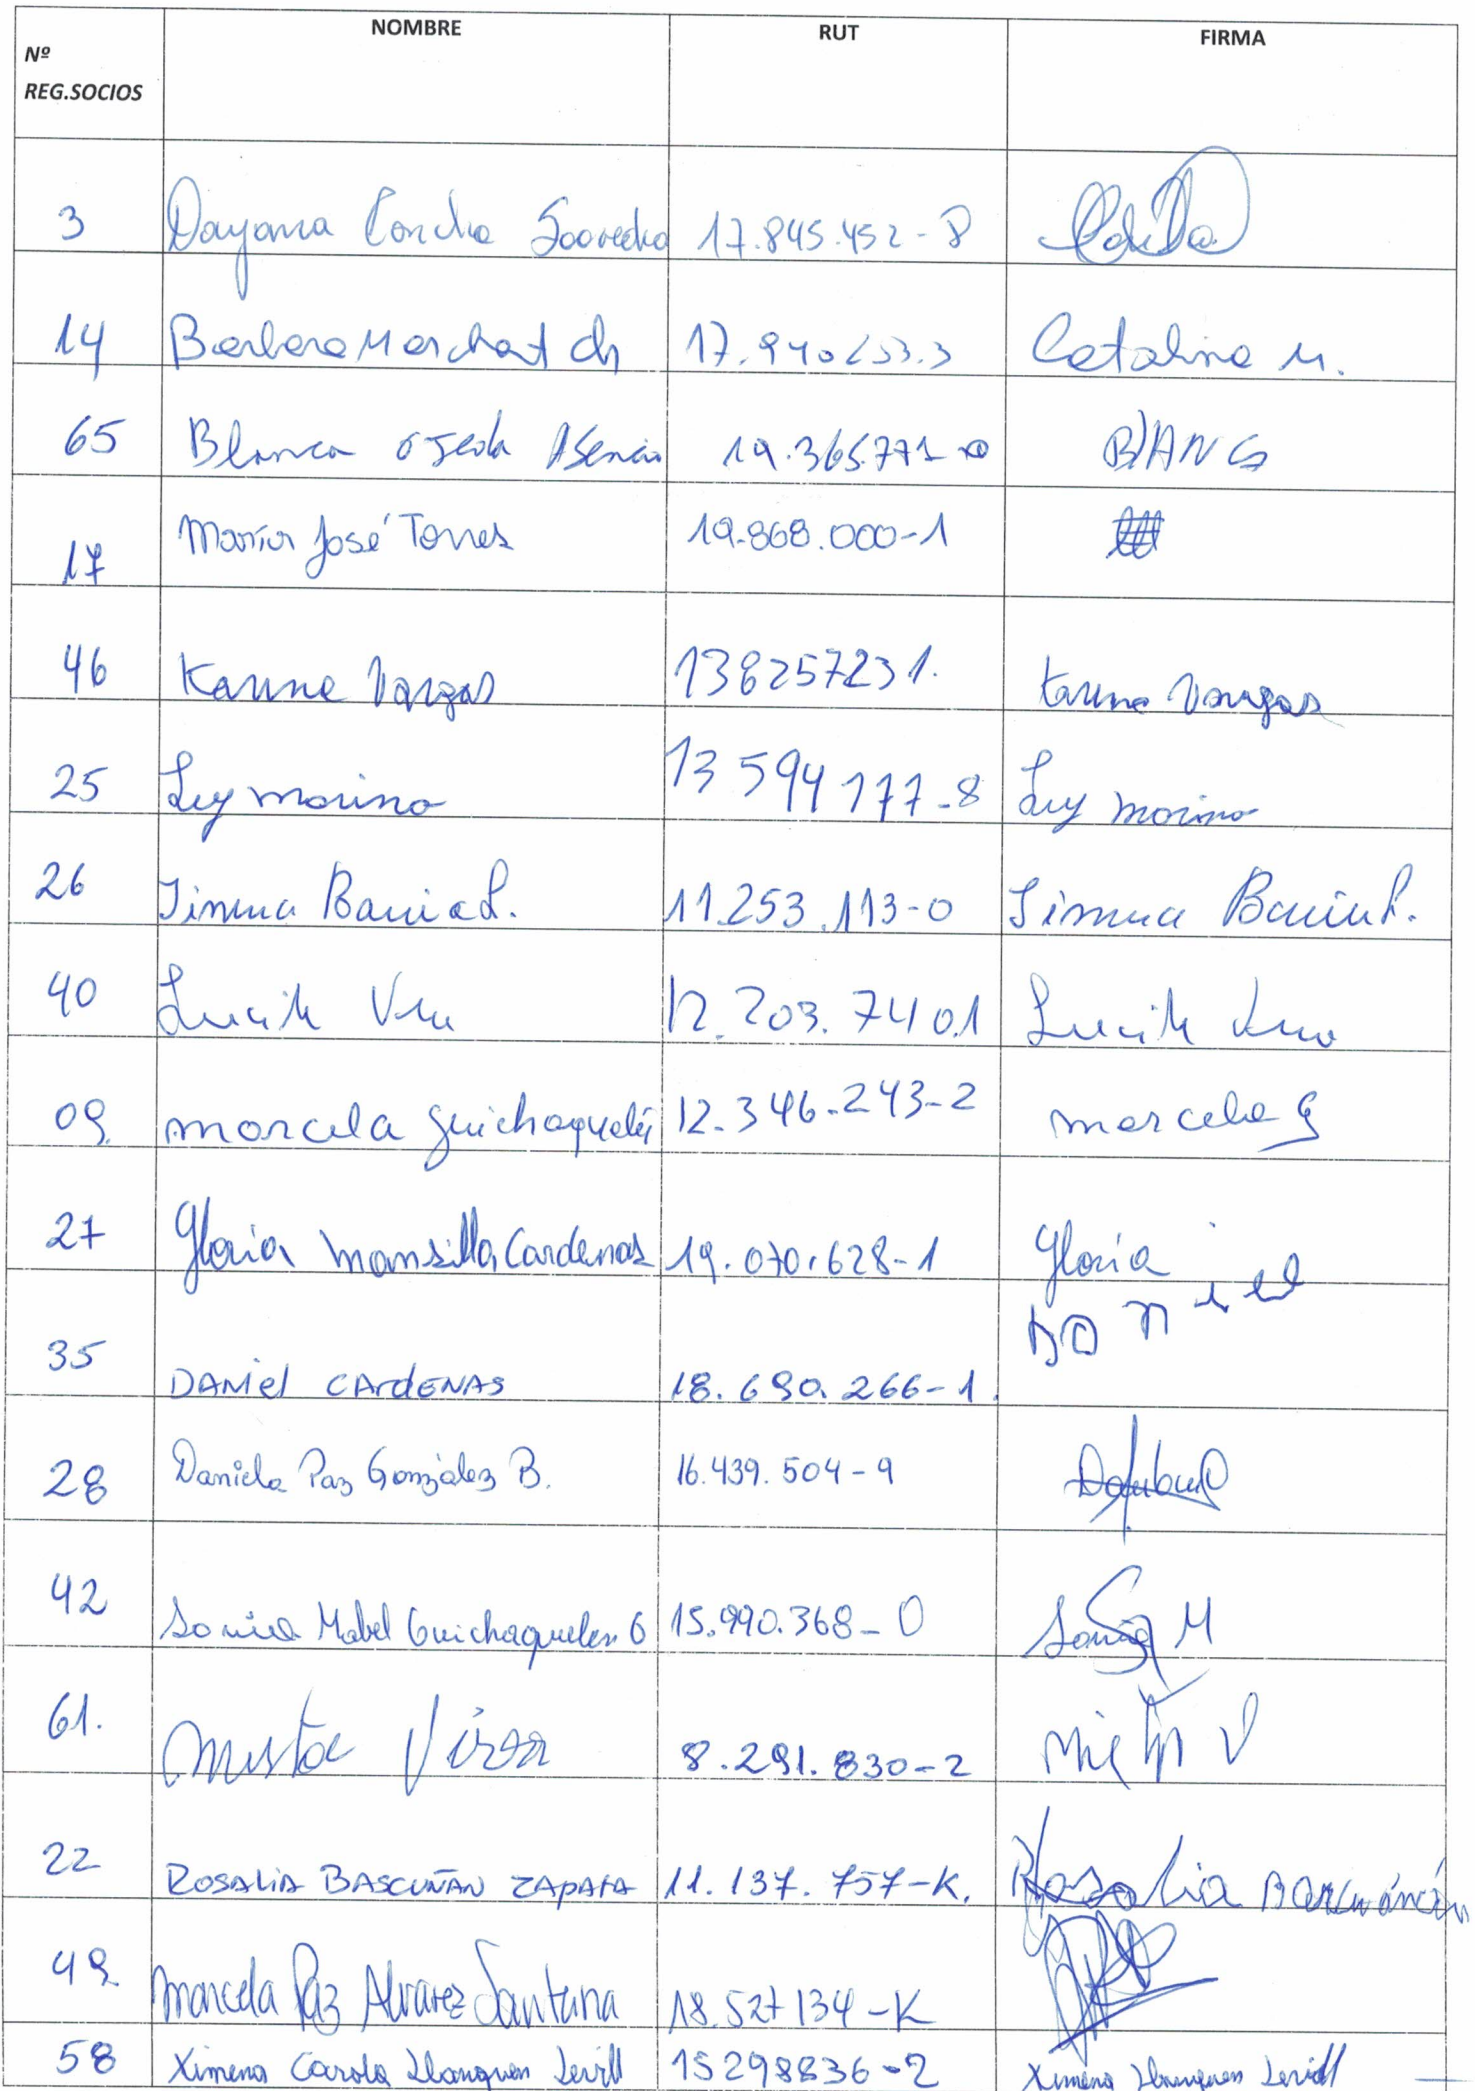 Nº REG.SOCIOS NOMBRE RUT FIRMA
3 Dayana Concha Saavedra 17.845.452-8
14 Barbara Marchant Ch 17.940253.3 Catalina M.
65 Blanca Ojeda Asencio 19.365.771 BlANCA
17 María José Torres 19.868.000-1
46 Karina Vargas 138257231. Karina Vargas
25 Luz marina 13 594 177-8 Luz marina
26 Jimena Barria L. 11.253.113-0 Jimena Barria L.
40 Lucila Vera 12.203.740.1 Lucila Vera
09. marcela guichaquelén 12.346.243-2 marcela G
27 Gloria Mansilla Cardenas 19.070.628-1 Gloria
35 DANiel CARdENAS 18.690.266-1. Daniel
28 Daniela Paz González B. 16.439.504-9
42 Sonia Mabel Guichaquelen G 15.990.368-0 Sonia M
61. Mirta 8.291.830-2 Mirta V
22 ROSALIA BASCUÑAN ZAPATA 11.137.757-K. Rosalia Bascuñán
49 Marcela Paz Alvarez Santana 18.527134-K
58 Ximena Carola Llanquen 15298836-2 Ximena Llanquen